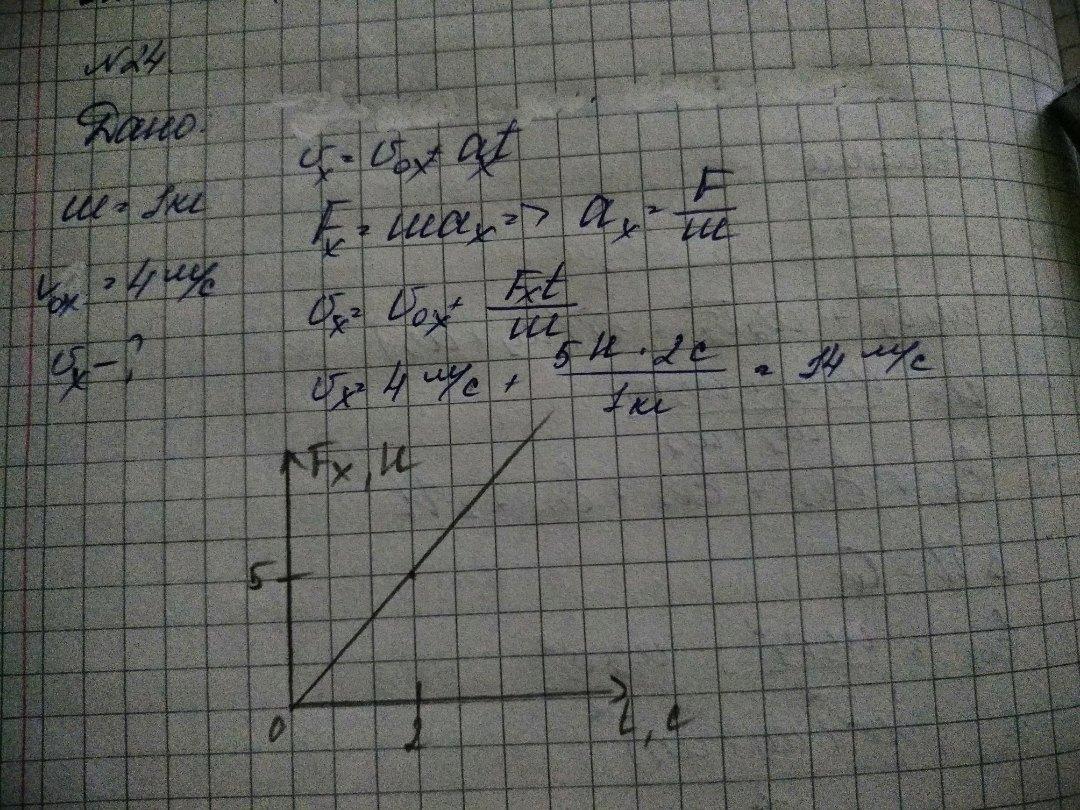 №24.
Дано:
m = 1кг
v₀ₓ = 4 м/с
vₓ - ?
vₓ = v₀ₓ + aₓt
Fₓ = maₓ => aₓ = F/m
vₓ = v₀ₓ + Fₓt/m
vₓ = 4 м/с + 5 Н · 2 с/1кг = 14 м/с
Fₓ, Н
5
0
2
t, c